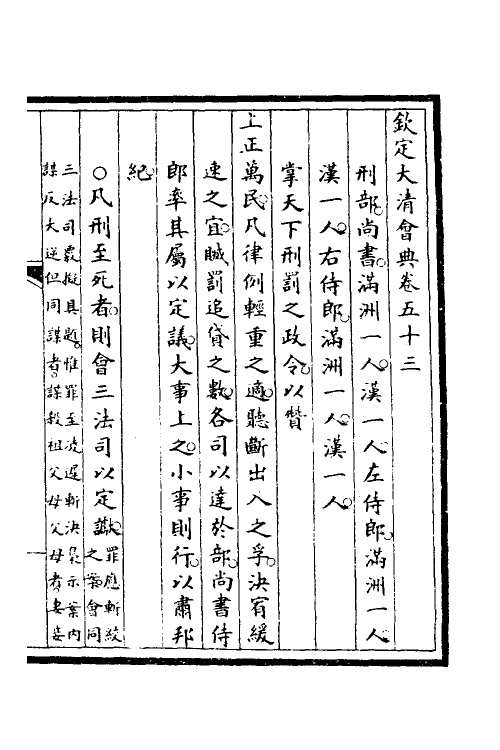 欽定大清會典卷五十三
刑部尚書滿洲一人漢一人左侍郎滿洲一人
漢一人右侍郎滿洲一人漢一人
掌天下刑罰之政令以贊
上正萬民凡律例輕重之適聽斷出入之孚決宥緩
速之宜贓罰追貸之數各司以達於部尚書侍
郎率其屬以定議大事上之小事則行以肅邦
紀
○凡刑至死者則會三法司以定讞罪應斬絞之案會同
三法司覈擬具題惟罪至凌遲斬決梟示案內
謀反大逆但同謀者謀殺祖父母父母者妻妾